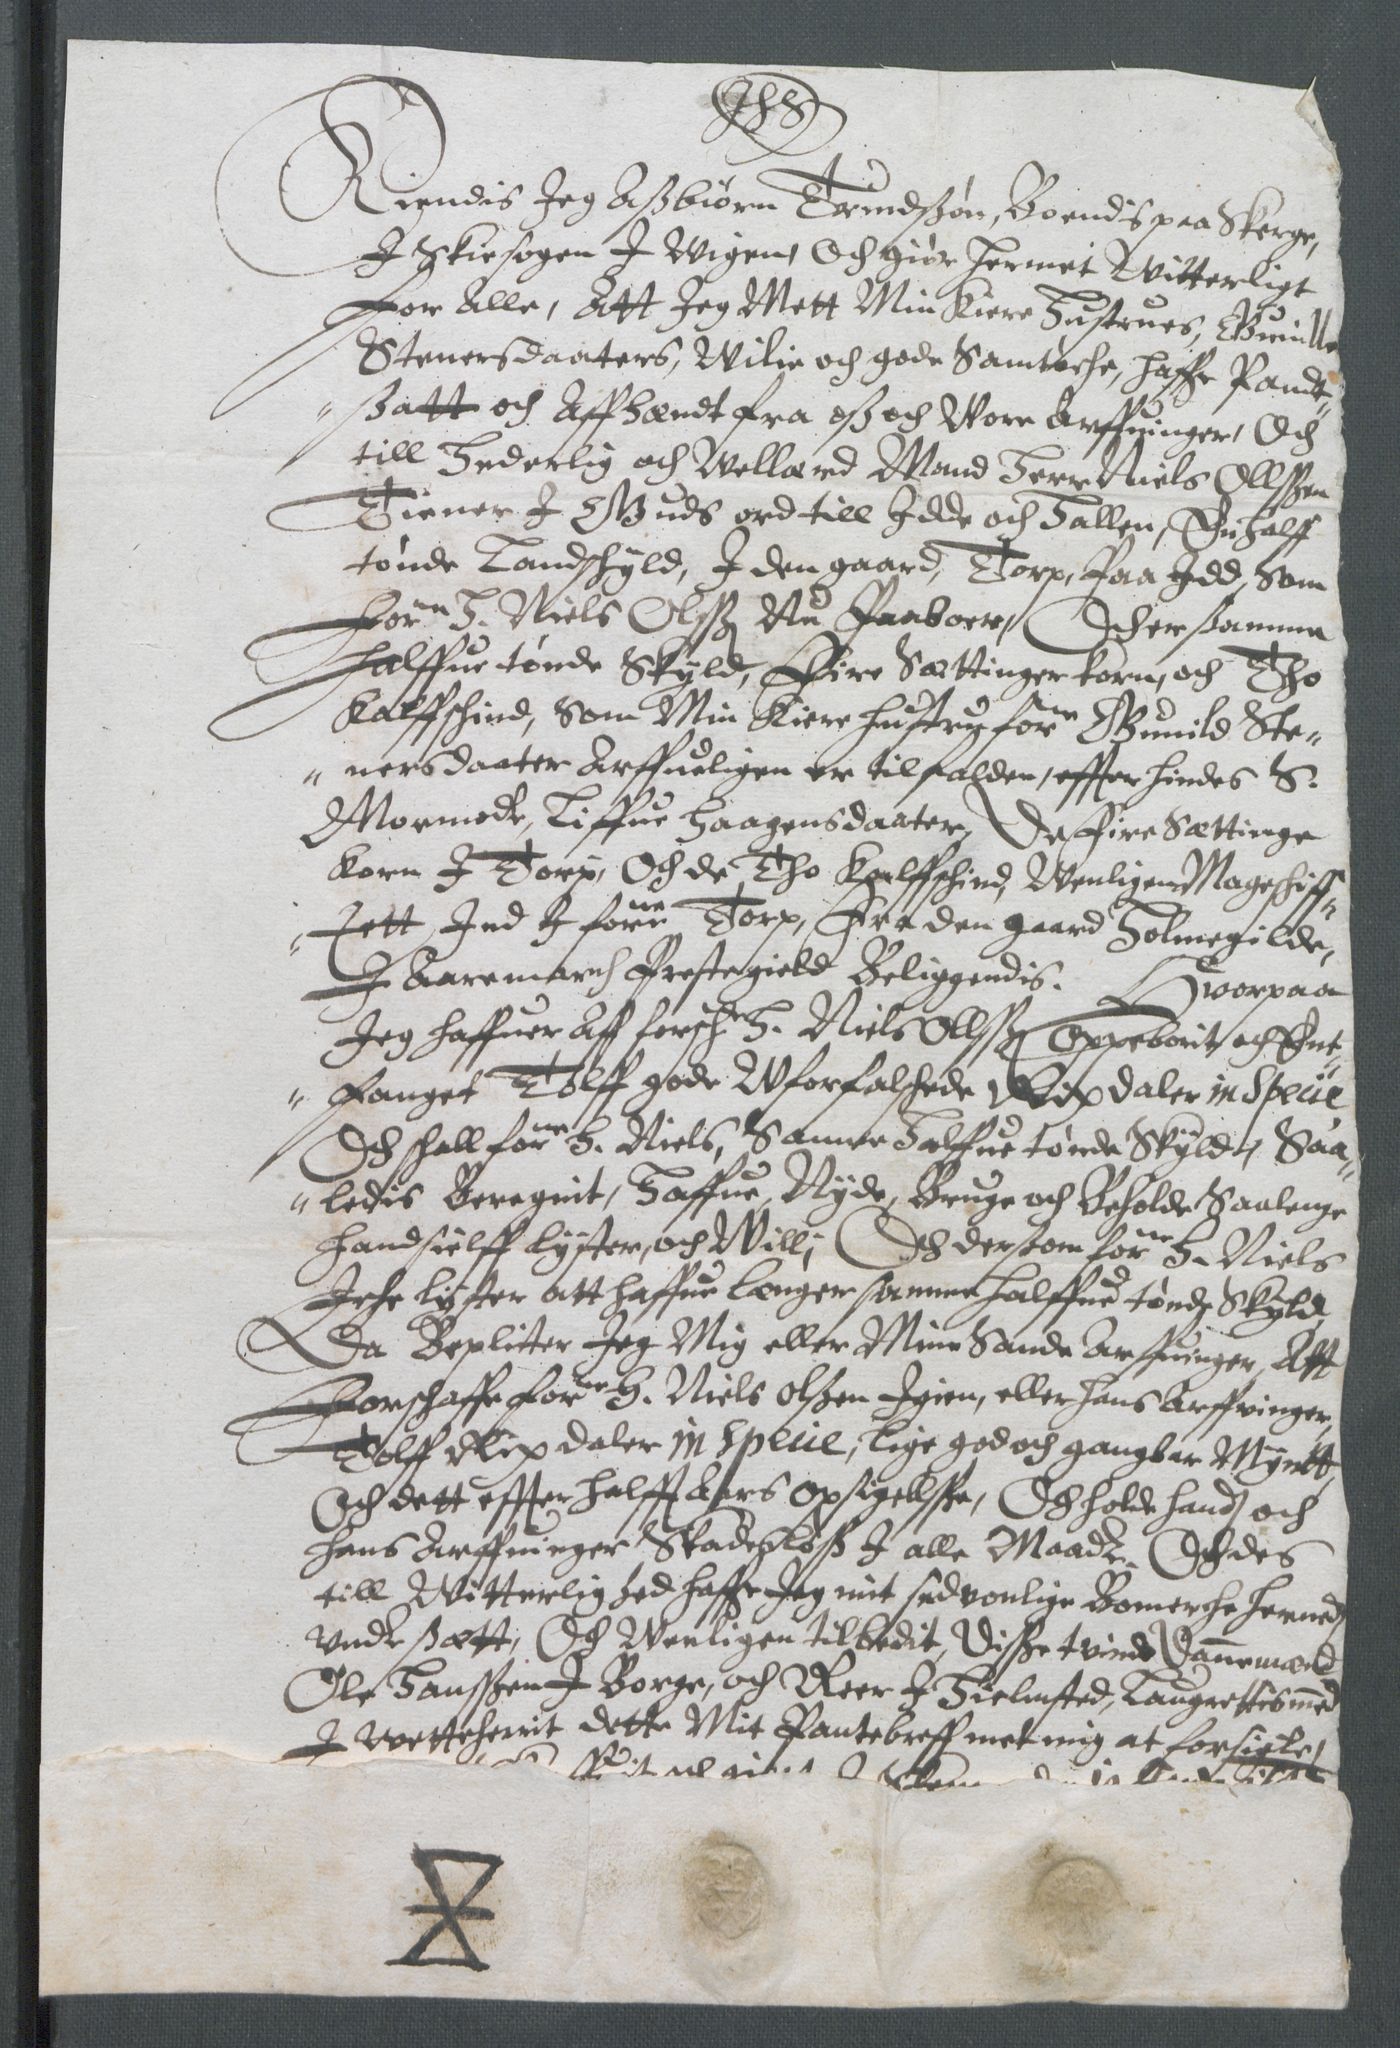 JHS
Kiendis Jeg Assbiørn Trundssøn, Boendis paa Skerge,
J Skiesogen J Wigen, Och giør hermet Witterligt
for Alle, Att Jeg Mett Min Kiere Hustrues, Gunille
Stenersdaaters, Wilie och gode Samtøche, haffr Pandt¬
" satt och Affhændt fra oss och Wore Arffuinger, Och
till Hederlig och Wellærd Mand Herr Niels Ollssen
Tiener J Guds ord till Jdde och Hallen, En halff
tønde Landschyld, J den gaard, Torp, Paa Jdd, Som
forne H. Niels Olss Nu Paaboer, Och er samme
halffue tønde Skyld, Fire Sættinger korn, och Tho
Kalffschind, Som Min Kiere hustru forne Gunild Ste¬
" nersdaater Arffueligen er tilfalden, effter hindes S.
Mormoder, Liffue Haagensdaater, De Fire Sættinge
korn J Torp, Och de Tho Kalffschind, Wenligen Mageschiff¬
" tett Ind J forne Torp, Fra den gaard Holmegilde,
J Aaremarch Prestegield Beliggendis. Huorpaa
Jeg haffuer Aff forschr H. Niels Ollss Oppeborit och Ent¬
" fanget Tolff gode Wforfalschede Rix daler in specie
Och schall forne H. Niels, Samme Halffue tønde Skyld, Saa¬
" ledis Beregnit, Haffue, Nyde, Bruge och Beholde Saalenge
hand sielff lyster, och Will, Och dersom forne H. Niels
Iche lyster att haffue længer samme halffue tønde Skyld
Da Beplicter Jeg Mig eller Mine Sande Arffuinger, Att
Forschaffe forne H. Niels olssen Igien, eller hans Arffvinger,
Tolff Rix daler in specie, lige god och gangbar Myntt,
Och dett effter halfft Aars opsigellsse, Och holde hand och
hans Arffuinger Skadesløss J alle Maader. Och des
till Witterlighed haffr Jeg mit sedvonlige Bomerche herned
under sætt, Och Wenligen tilbedit, Disse tvinde Dannemænd
Ole Hanssen J Borge, och Reer J Hielmsted, Laugrettesmend
J vetteherrit dette Mit Pantebreff met mig at forsigle,